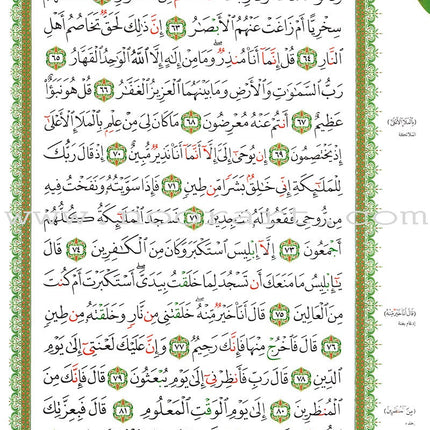 سِخْرِيًّا أَمْ زَاغَتْ عَنْهُمُ ٱلْأَبْصَـٰرُ ٦٣ إِنَّ ذَٰلِكَ لَحَقٌّ تَخَاصُمُ أَهْلِ
ٱلنَّارِ ٦٤ قُلْ إِنَّمَآ أَنَا۠ مُنذِرٌ ۖ وَمَا مِنْ إِلَـٰهٍ إِلَّا ٱللَّهُ ٱلْوَٰحِدُ ٱلْقَهَّارُ ٦٥
رَبُّ ٱلسَّمَـٰوَٰتِ وَٱلْأَرْضِ وَمَا بَيْنَهُمَا ٱلْعَزِيزُ ٱلْغَفَّـٰرُ ٦٦ قُلْ هُوَ نَبَؤٌا۟
عَظِيمٌ ٦٧ أَنتُمْ عَنْهُ مُعْرِضُونَ ٦٨ مَا كَانَ لِىَ مِنْ عِلْمٍۭ بِٱلْمَلَإِ ٱلْأَعْلَىٰٓ
إِذْ يَخْتَصِمُونَ ٦٩ إِن يُوحَىٰٓ إِلَىَّ إِلَّآ أَنَّمَآ أَنَا۠ نَذِيرٌ مُّبِينٌ ٧٠ إِذْ قَالَ رَبُّكَ
لِلْمَلَـٰٓئِكَةِ إِنِّى خَـٰلِقٌۢ بَشَرًا مِّن طِينٍ ٧١ فَإِذَا سَوَّيْتُهُۥ وَنَفَخْتُ فِيهِ
مِن رُّوحِى فَقَعُوا۟ لَهُۥ سَـٰجِدِينَ ٧٢ فَسَجَدَ ٱلْمَلَـٰٓئِكَةُ كُلُّهُمْ
أَجْمَعُونَ ٧٣ إِلَّآ إِبْلِيسَ ٱسْتَكْبَرَ وَكَانَ مِنَ ٱلْكَـٰفِرِينَ ٧٤ قَالَ
يَـٰٓإِبْلِيسُ مَا مَنَعَكَ أَن تَسْجُدَ لِمَا خَلَقْتُ بِيَدَىَّ ۖ أَسْتَكْبَرْتَ أَمْ كُنتَ
مِنَ ٱلْعَالِينَ ٧٥ قَالَ أَنَا۠ خَيْرٌ مِّنْهُ ۖ خَلَقْتَنِى مِن نَّارٍ وَخَلَقْتَهُۥ مِن طِينٍ
٧٦ قَالَ فَٱخْرُجْ مِنْهَا فَإِنَّكَ رَجِيمٌ ٧٧ وَإِنَّ عَلَيْكَ لَعْنَتِىٓ إِلَىٰ يَوْمِ
ٱلدِّينِ ٧٨ قَالَ رَبِّ فَأَنظِرْنِىٓ إِلَىٰ يَوْمِ يُبْعَثُونَ ٧٩ قَالَ فَإِنَّكَ مِنَ
ٱلْمُنظَرِينَ ٨٠ إِلَىٰ يَوْمِ ٱلْوَقْتِ ٱلْمَعْلُومِ ٨١ قَالَ فَبِعِزَّتِكَ
(بِالْمَلَإِ الْأَعْلَى)
الملائكة
(قَالَ أَنَا خَيْرٌ مِنْهُ)